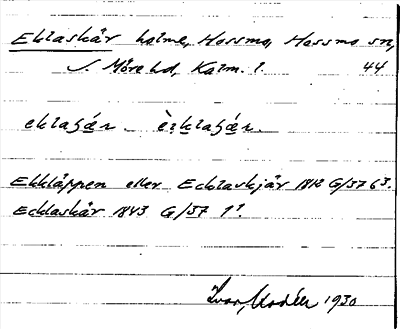 Eklaskär holme, Hossmo, Hossmo sn,
S. Möre hd, Kalm. l. 44
eklaʃæ̀r - èklaʃæ̀r.
Ekkläppen eller Ecklaskjär 1812 G/57 63.
Ecklaskär 1843 G/57 1¹.
Ivar Modéer 1930